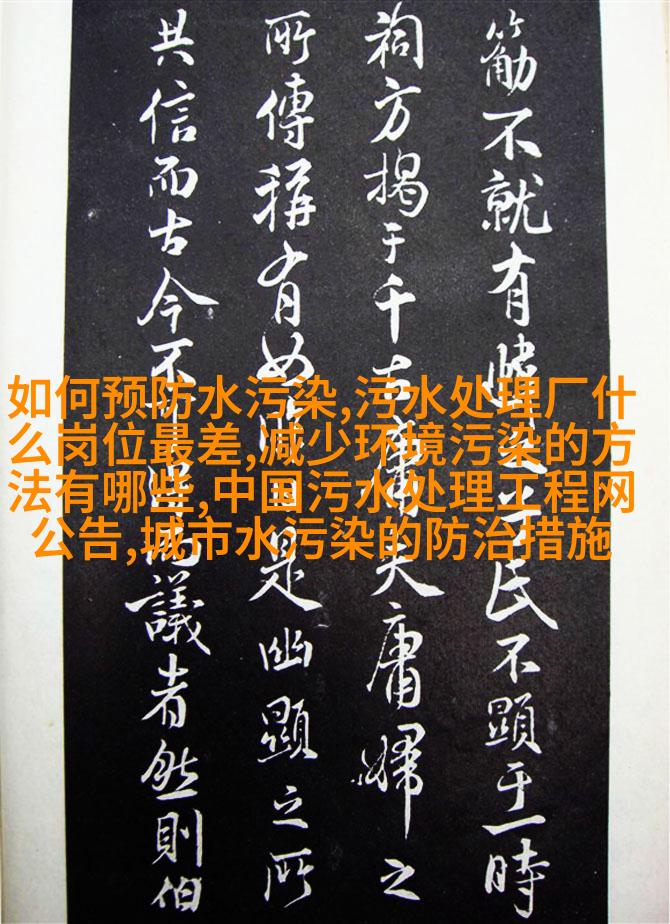 不就有民不顯于一時
祠方揭于千古庸夫庸婦之
所傳稱有如是幽顯之所
共信而古今不議者然則伯
如何预防水污染,污水处理厂什
么岗位最差,减少环境污染的方
法有哪些,中国污水处理工程网
公告,城市水污染的防治措施